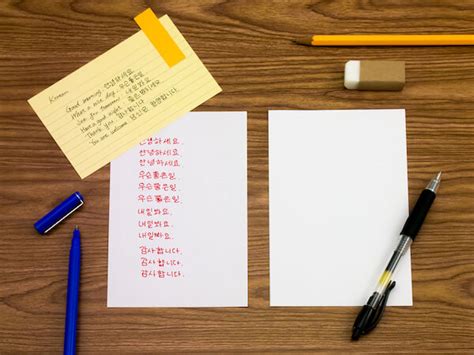 Korean
Good morning. 안녕하세요.
What a nice day. 우슨좋은일.
See you tomorrow. 내일봐요.
Have a good night. 좋은밤되세요.
Thank you. 감사합니다.
You are welcome. 환영합니다.
안녕하세요.
안녕하세요.
안녕하세요.
우슨좋은일.
우슨좋은일.
우슨좋은일.
내일봐요.
내일봐요.
내일봐요.
감사합니다.
감사합니다.
감사합니다.